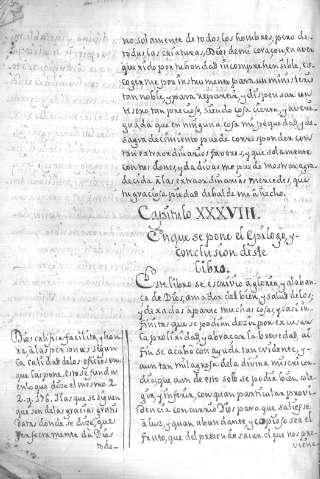 no solamente de todos los hombres, pero de
todas las criaturas, Dios de mi coraçon, en aver
querido por tu bondad incomprehensible, es-
cogerme por instrumento para un ministerio
tan noble, y para repartir, y dispensar un
tesoro tan precioso, siendo cosa cierta, y averi-
guada que en ninguna cosa mi pequedad, y de-
sagradecimiento puede corresponder con
tan extraordinarios favores, y que solamente
con tus dones, y dadivas me puedo mostrar agra-
decida a las extraordinarias mercedes, que
tu graciosa piedad debalde me a hecho.
Capitulo XXXVIII.
En que se pone el Epilogo, y
conclusion deste
libro.
Este libro se escrivio a gloria, y alaban-
ça de Dios, amador del bien, y salud de los
y dexadas a parte muchas cosas, y casi in-
finitas que se podian dezir por excusar
la prolixidad, y abraçar la brevedad, al
fin se acabo con ayuda tan evidente, y
aun tan milagrosa de la divina miseri
cordia, que aun de esto solo se podia bien cole-
gir, y inferir, con quan particular provi
dencia concurrio Dios para que saliesse
a luz, y quan abundante, y copioso sea el
fruto, que del pretende sacar el que nos pre-
viene
Dios califica, facilita, y hon
ra, a las personas segun
la calidad de los oficios en
que las pone, esto se funda
en lo que dize el mesmo 2.
2. q. 176. I las que se siguen
que son de las gracias gratis
datas donde se dize, que
perfectamente da Dios
todo